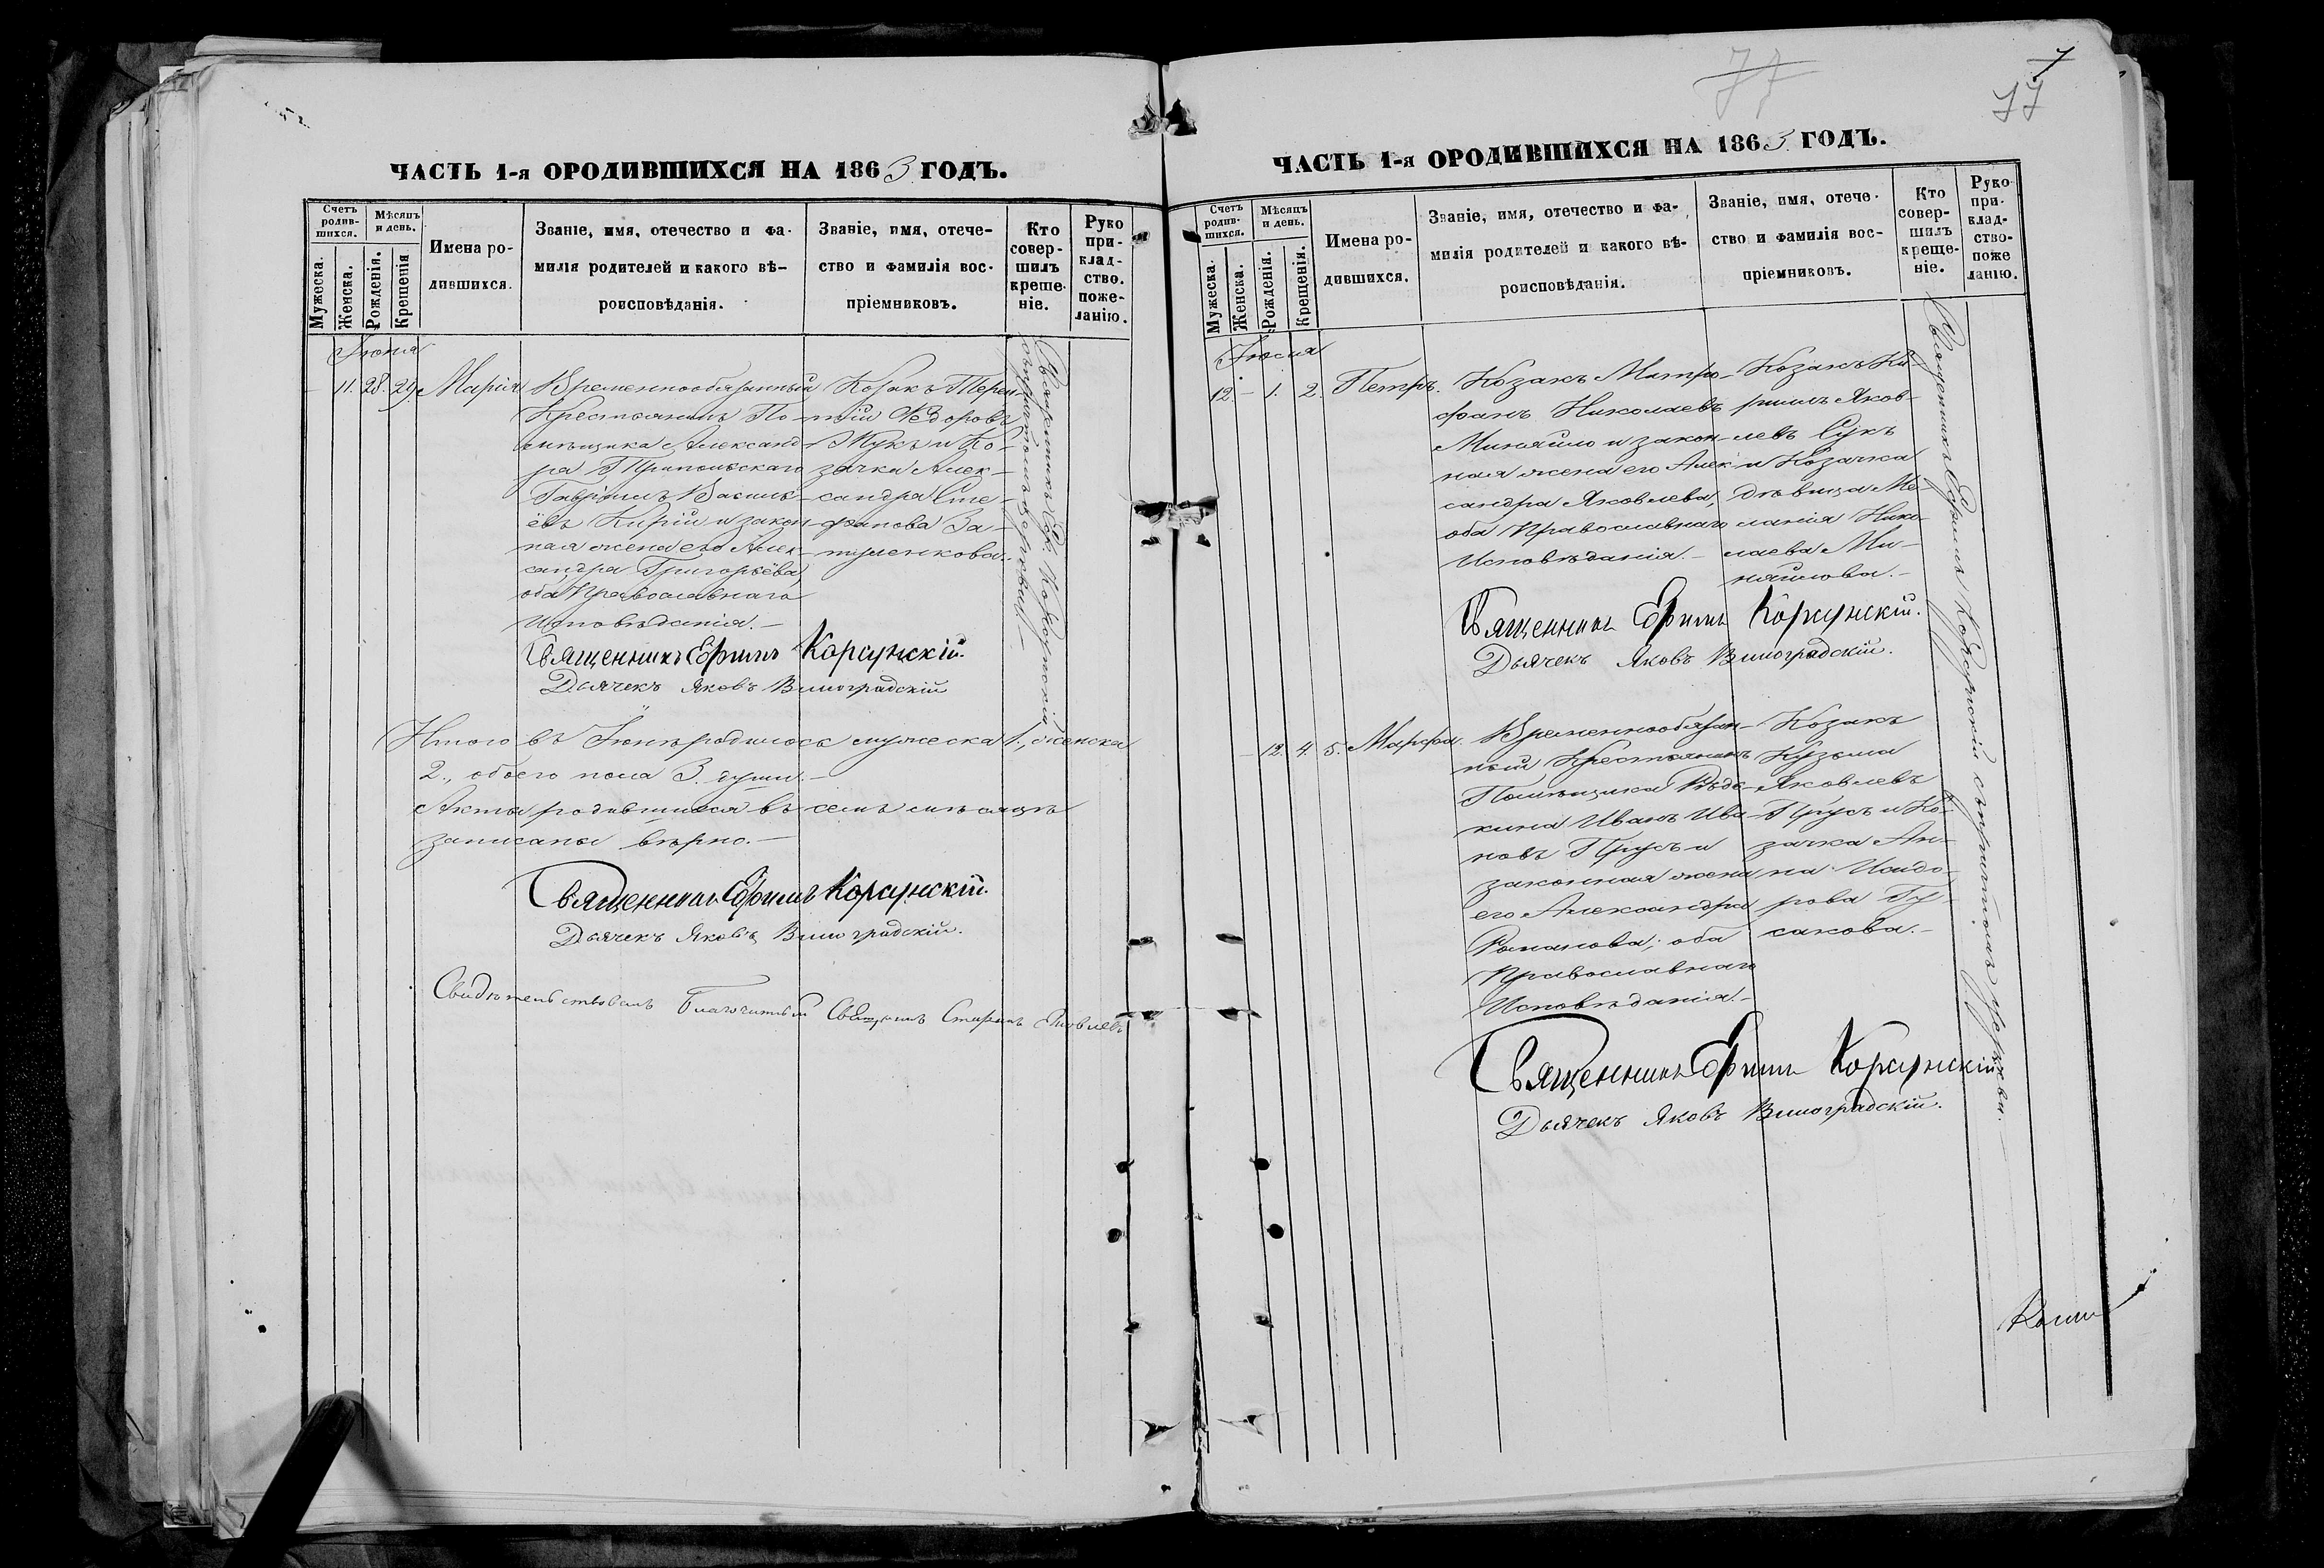 ЧАСТЬ 1-я ОРОДИВШИХСЯ НА 1863 ГОДЪ.
Счетъ родив-шихся.
Мѣсяцъ и день.
Мужеска.
Женска.
Рожденія.
Крещенія
Имена ро-
дившихся.
Званіе, имя, отечество и фа-
милія родителей и какого вѣ-
роисповѣданія.
Званіе, имя, отече-
ство и фамилія вос-
пріемниковъ.
Кто совер-шилъ креще-ніе.
Руко при-клад-ство. поже-ланію.
Іюня
11. 28. 29. Марія
Временнообязанный
Крестьянинъ По-
мѣщика Александ-
ра
Гавріилъ Василь-
евъ Кирій и закон-
ная жена его Алек-
сандра Григорьева,
оба Православнаго
Исповѣданія.-
Козакъ Терен-
тій Ѳедоровъ
Жукъ и Ко-
зачка Алек-
сандра Сте-
фанова За-
Священникъ Ефимъ Корсунскій съ причтомъ церкви.-
Священникъ Ефимъ Корсунскій.
Дьячекъ Яковъ Виноградскій
Итого въ Іюнѣ родилось мужеска 1., женска
2., обоего пола 3. души.-
Акты родившихся въ семъ мѣсяцѣ
записаны вѣрно.-
Священникъ Ефимъ Корсунскій.
Дьячекъ Яковъ Виноградскій.
Свидѣтельствовалъ Благочинный Священникъ
77
7
77
ЧАСТЬ 1-я ОРОДИВШИХСЯ НА 1863 ГОДЪ.
Счетъ родив-шихся.
Мѣсяцъ и день.
Мужеска.
Женска.
Рожденія.
Крещенія.
Имена ро-
дившихся.
Званіе, имя, отечество и фа-
милія родителей и какого вѣ-
роисповѣданія.
Званіе, имя, отече-
ство и фамилія вос-
пріемниковъ.
Кто совер-шилъ креще-ніе.
Руко-при-клад-ство-поже ланію.
Іюля
12. - 1. 2. Петръ.
Козакъ Митро-
фанъ Николаевъ
Миняйло и закон-
ная жена его Алек-
сандра Яковлева,
оба Православнаго
Исповѣданія.-
Козакъ Ки-
риллъ Яков-
левъ Сукъ
и Козачка
дѣвица Ме-
ланія Нико-
лаева Ми-
няйлова.-
Священникъ Ефимъ Корсунскій.
Дьячекъ Яковъ Виноградскій.
- 12. 4. 5. Марфа.
Временнообязан-
ный Крестьянинъ
Помѣщика
Иванъ Ива-
новъ Прусъ и
законная жена
его Александра
Романова; оба
Православнаго
Исповѣданія.-
Козакъ
Кузьма
Яковлевъ
Прусъ и Ко-
зачка Ан-
на Исидо-
рова Гу-
сакова.-
Священникъ Ефимъ Корсунскій съ причтомъ церкви.-
Священникъ Ефимъ Корсунскій
Дьячекъ Яковъ Виноградскій.